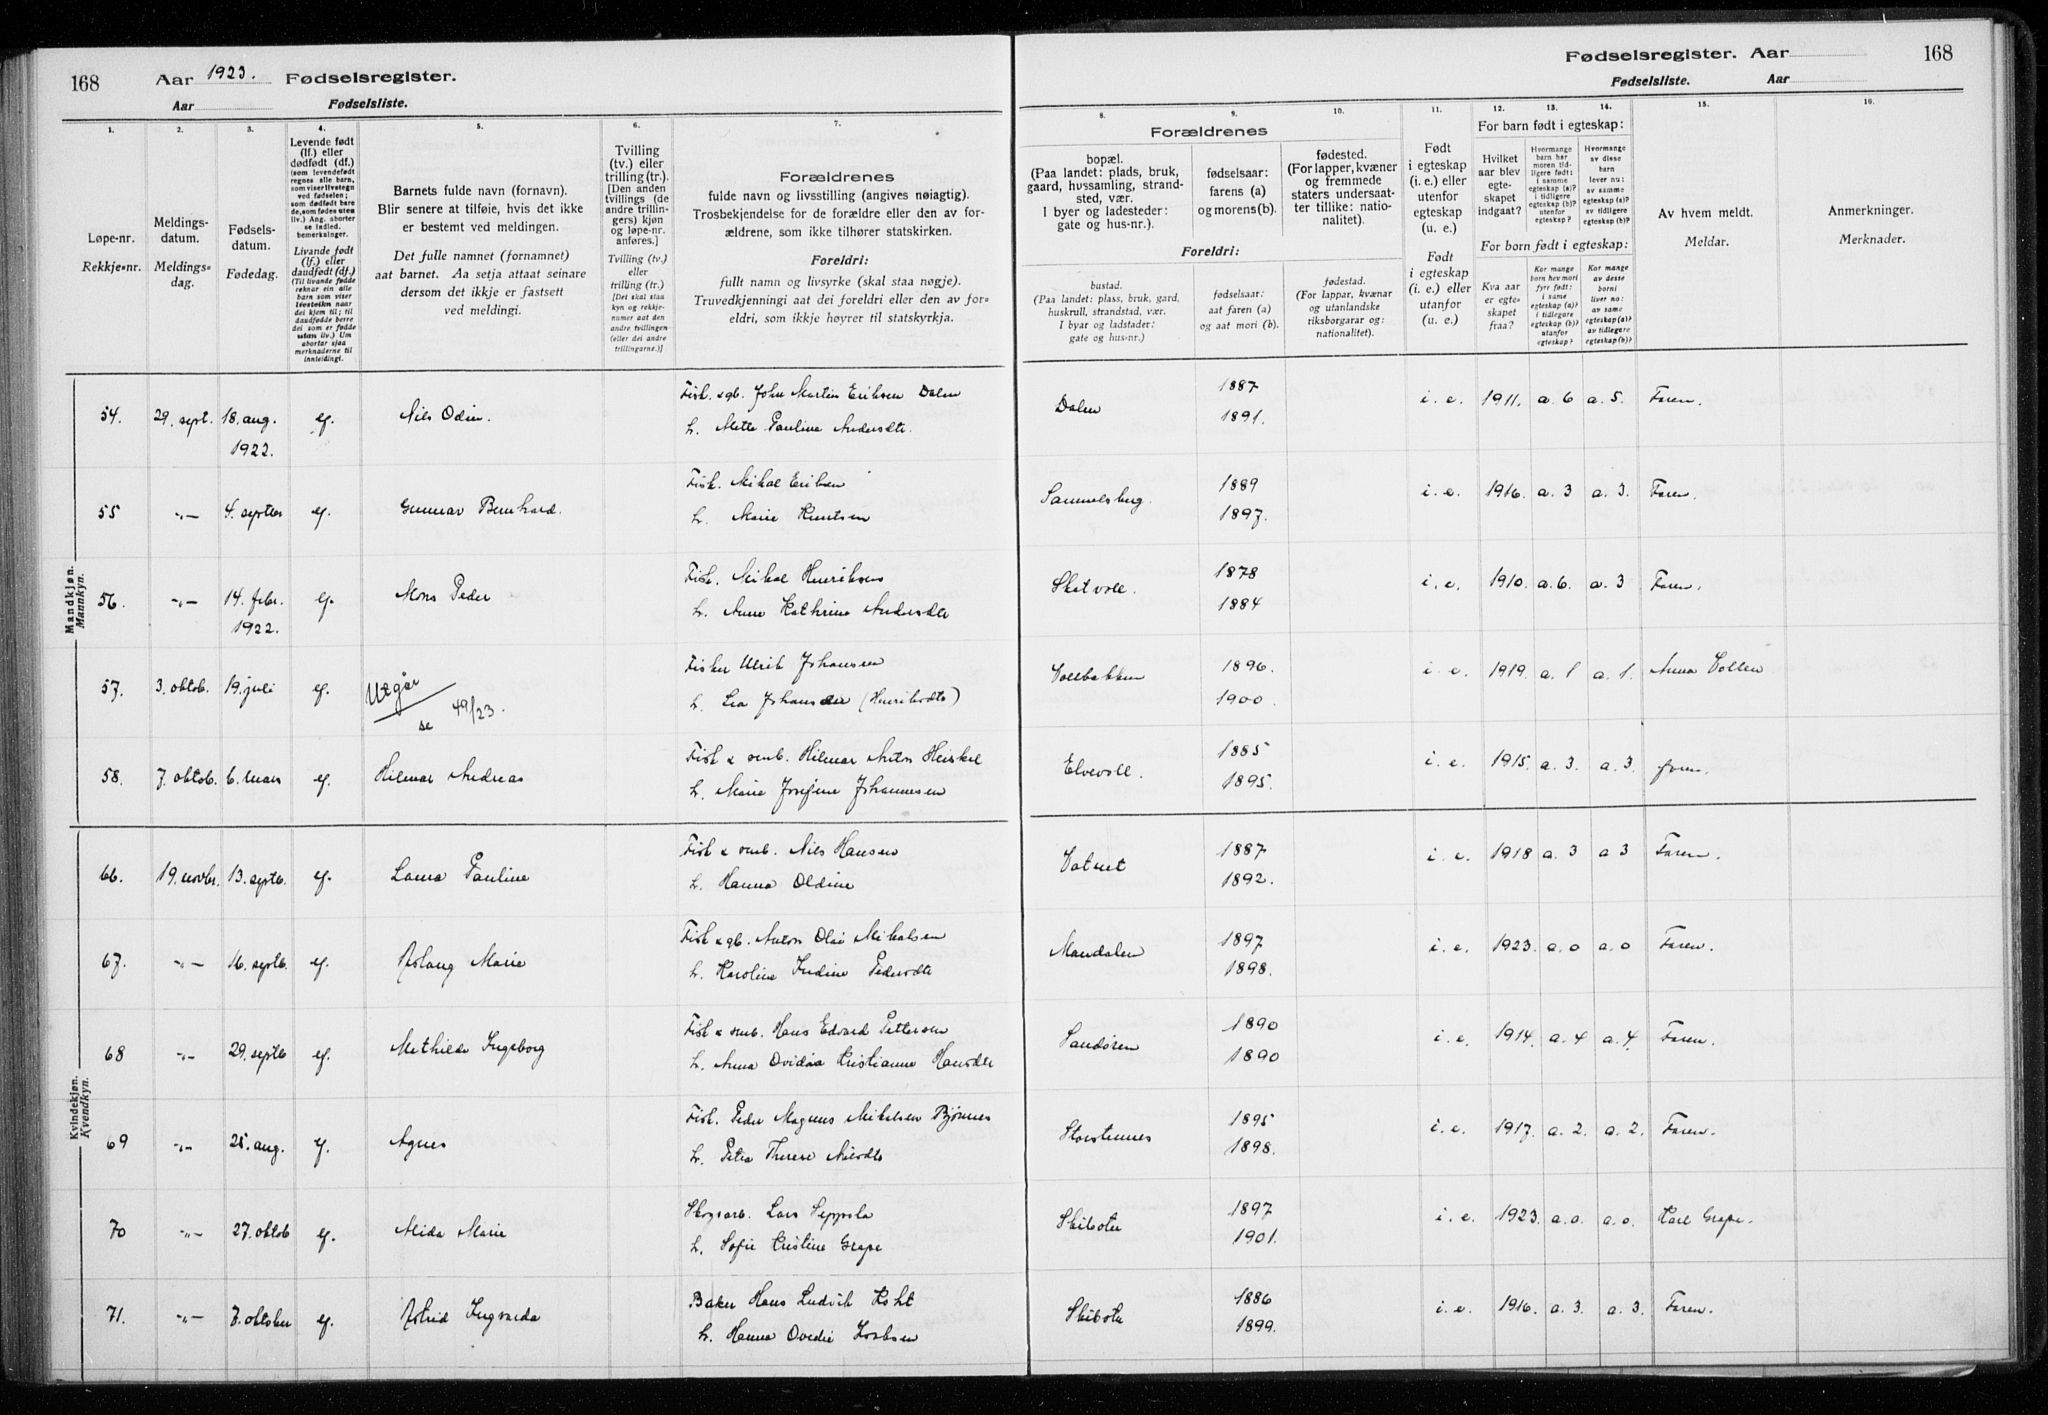 168 Aar 1923. Fødselsregister.
Aar Fødselsliste.
Fødselsregister. Aar 168
Fødselsliste. Aar
1. 2. 3. 4. 5. 6. 7.
Løpe-nr.
Rekkje-nr.
Meldings-
datum.
Meldings-
dag.
Fødsels-
datum.
Fødedag.
Levende født
(lf.) eller
dødfødt (df.)
(som levendefødt
regnes alle barn,
som viser livstegn
ved fødselen;
som dødfødt bare
de, som fødes uten
liv.) Ang. aborter
se indled.
bemerkninger.
Livande født
(lf.) eller
daudfødt (df.)
(Til livande fødde
reknar ein alle
barn som viser
livsteikn naar
dei kjem til; til
daudfødde berre
dei som er fødde
utan liv.) Um
abortar sjaa
merknaderne til
innleidingi.
Barnets fulde navn (fornavn).
Blir senere at tilføie, hvis det ikke
er bestemt ved meldingen.
Det fulle namnet (fornamnet)
aat barnet. Aa setja attaat seinare
dersom det ikkje er fastsett
ved meldingi.
Tvilling
(tv.) eller
trilling (tr.).
[Den anden
tvillings (de
andre trillin-
gers) kjøn
og løpe-nr.
anføres.]
Tvilling (tv.)
eller
trilling (tr.)
[Det skal staa
kyn og rekkje-
numer aat den
andre tvillingen
(eller dei andre
trillingarne.)]
Forældrenes
fulde navn og livsstilling (angives nøiagtig).
Trosbekjendelse for de forældre eller den av for-
ældrene, som ikke tilhører statskirken.
Foreldri:
fullt namn og livsyrke (skal staa nøgje).
Truvedkjenningi aat dei foreldri eller den av for-
eldri, som ikkje høyrer til statskyrkja.
8. 9. 10. 11. 12. 13. 14. 15. 16.
Forældrenes
bopæl.
(Paa landet: plads, bruk,
gaard, hussamling, strand-
sted, vær.
I byer og ladesteder:
gate og hus-nr.).
fødselsaar:
farens (a)
og morens (b).
fødested.
(For lapper, kvæner
og fremmede
staters undersaat-
ter tillike: natio-
nalitet).
Foreldri:
bustad.
(Paa landet: plass, bruk, gard,
huskrull, strandstad, vær.
I byar og ladstader:
gate og hus-nr.)
fødselsaar:
aat faren (a)
og aat mori (b).
fødestad.
(For lappar, kvænar
og utanlandske
riksborgarar og:
nationalitet).
Født
i egteskap
(i. e.) eller
utenfor
egteskap
(u. e.)
Født
i egteskap
(i. e.) eller
utanfor
(u. e.)
For barn født i egteskap:
Hvilket
aar blev
egte-
skapet
indgaat?
Hvormange
barn har
moren tid-
ligere født:
i samme
egteskap (a)?
i tidligere
egteskap (b)?
utenfor
egteskap?
Hvormange
av disse
barn
lever nu:
av samme
egteskap (a)?
av tidligere
egteskap (b)?
For born født i egteskap:
Kva aar
er egte-
skapet
fraa?
Kor mange
born hev mori
fyrr født:
i same
egteskap (a)?
i tidlegare
egteskap (b)?
utanfor
egteskap?
Kor mange
av desse
borni
liver no:
av same
egteskap (a)?
av tidlegare
egteskap (b)?
Av hvem meldt.
Meldar.
Anmerkninger.
Merknader.
Mandkjøn.
Mannkyn.
54. 29. sept. 18. aug. 1922. lf. Nils Odin. Fisk. & gb. John Martin Eriksen Dalen
h. Mette Pauline Andersdtr. Dalen 1887 1891. i. e. 1911. a. 6 a. 5. Faren.
55 -„- 4. septbr lf. Gunnar Bernhard. Fisk. Mikal Eriksen
h. Marie Knutsen Sammelsberg. 1889 1897. i. e. 1916. a. 3 a. 3. Faren.
56. -„- 14. febr. 1922. lf. Mons Peder Fisk. Mikal Henriksen
h. Anne Kathrine Andersdtr Skatvoll. 1878 1884 i. e. 1910. a. 6. a. 3 Faren.
57. 3. oktob. 19. juli lf. Utgår
se 49/23. Fisker Ulrik Johansen
h. Lea Johansen (Henriksdtr) Vollbakken 1896. 1900. i. e. 1919. a. 1 a. 1. Anna Vollen
58. 7. oktob. 6. mars lf. Hilmar Andreas Fisk & smb. Hilmar Anton Heiskel
h. Marie Josefine Johannesen Elvevoll. 1885 1895. i. e. 1915. a. 3. a. 3. faren.
Kvindekjøn.
Kvendkyn.
66. 19. novbr. 13. septb. lf. Laura Pauline Fisk & smb. Nils Hansen
h. Hanna Oldine Vatnet 1887 1892. i. e. 1918 a. 3 a 3 Faren.
67. -„- 16. septb. lf. Aslaug Marie Fisk & gb. Anton Olai Mikalsen
h. Karoline Indine Pedersdtr Mandalen 1897 1898. i. e. 1923. a. 0 a. 0 Faren.
68 -„- 29. septb lf. Mathilde Ingeborg Fisk & smb. Hans Edvard Pettersen
h. Anna Ovidia Kristianne Hansdtr Sandøren 1890 1890 i. e. 1914. a. 4 a. 4. Faren.
69 -„- 25. aug. lf. Agnes Fisk. Peder Magnus Mikalsen Bjønnes
h. Petra Therese Nilsdtr Storstennes 1895 1898. i. e. 1917. a. 2. a. 2. Faren.
70 -„- 27. oktob lf. Alida Marie Skogsarb. Lars Seppola
h. Sofie Kristine Grape Skibotn 1897 1901. i. e. 1923. a. 0. a. 0. Karl Grape.
71. -„- 7. oktober lf. Astrid Ingvarda Baker Hans Ludvik Koht
h. Hanna Ovedie Isaksen Skibotn 1886 1899. i. e. 1916. a. 3. a. 3. Faren.